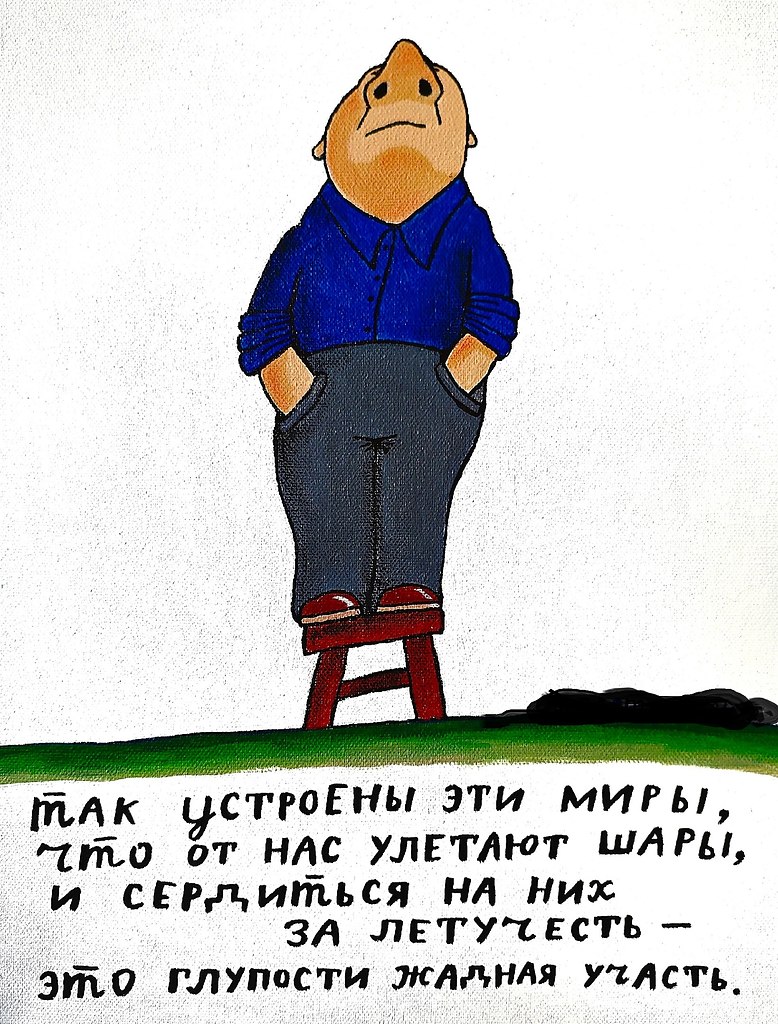 так устроены эти миры,
что от нас улетают шары,
и сердиться на них
за летучесть —
это глупости жадная участь.